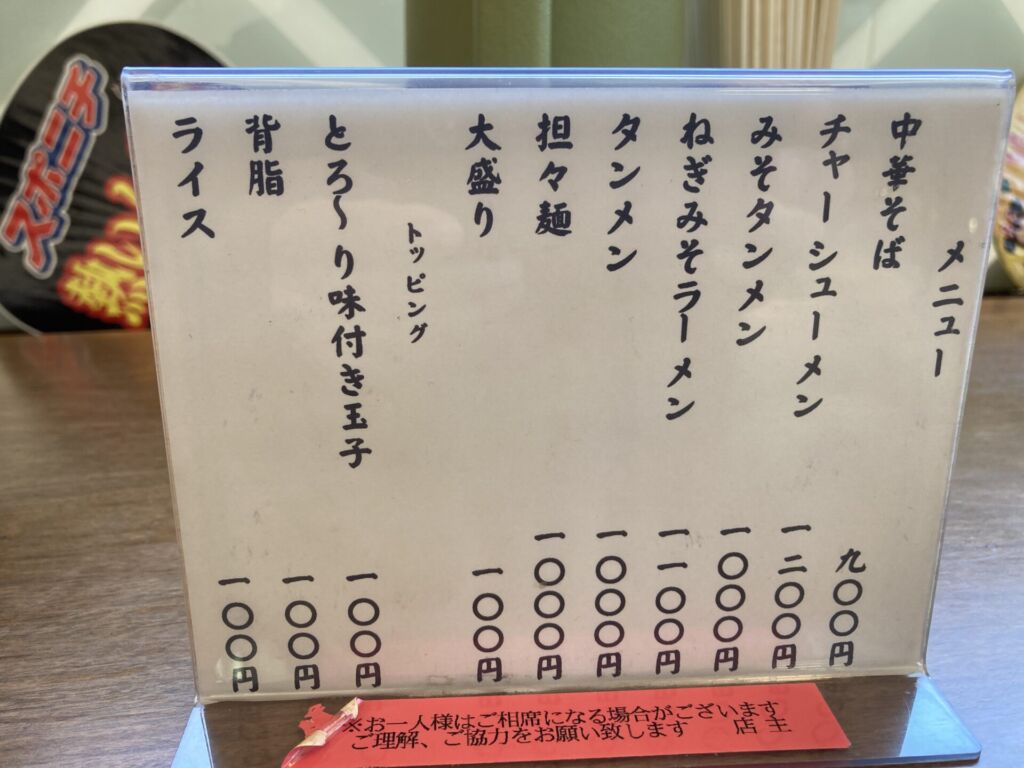 メニュー
中華そば 九〇〇円
チャーシューメン 一二〇〇円
みそタンメン 一〇〇〇円
ねぎみそラーメン 一一〇〇円
タンメン 一〇〇〇円
担々麺 一〇〇〇円
大盛り 一〇〇円
トッピング
とろ〜り味付き玉子 一〇〇円
背脂 一〇〇円
ライス 一〇〇円
※お一人様はご相席になる場合がございます
ご理解、ご協力をお願い致します 店主
スポニチ
熱い